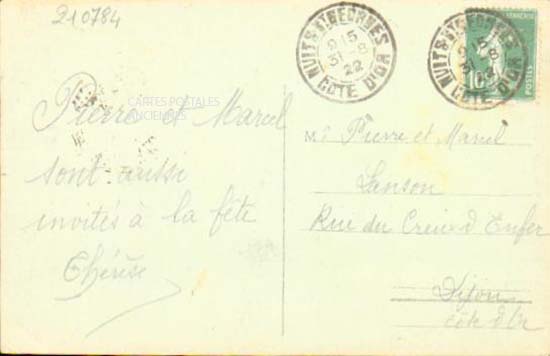 210784
NUITS ST GEORGES
9 15
31 - 8
22
COTE D'OR
NUITS ST GEORGES
9 15
31 8
22
COTE D'OR
10
POSTES
CARTES POSTALES
ANCIENNES
Pierre et Marcel
sont aussi
invités à la fête
Thérèse
Mrs Pierre et Marcel
Sanson
Rue du Creux d'Enfer
Dijon
Côte d'Or